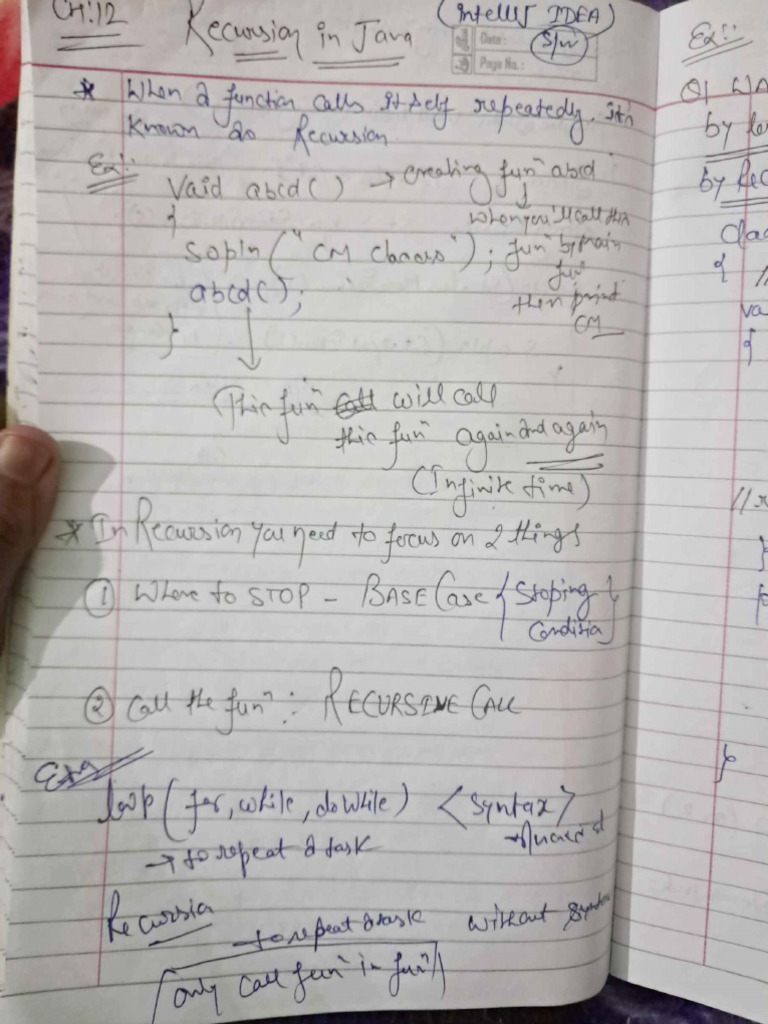 CH:12 Recursion in Java (Intellij IDEA)
S/W
Date:
Page No.:
* When a function calls itself repeatedly, it's
known as Recursion.
Ex:-
void abcd() → creating funⁿ abcd
↓
{ when you'll call this
sopln("CM Classes"); funⁿ by main
funⁿ
abcd(); then print
CM
}
↓
(This funⁿ will call
this funⁿ again and again
(Infinite time)
* In Recursion you need to focus on 2 things
① Where to STOP - BASE Case { Stoping
Condition }
② Call the funⁿ : RECURSIVE CALL
loop (for, while, dowhile) <Syntax>
→ to repeat a task
Recursion
→ to repeat a task without
only call funⁿ in funⁿ
Ex:-
Q1 WA
by
by Rec
Clas
{ //
{
}
}